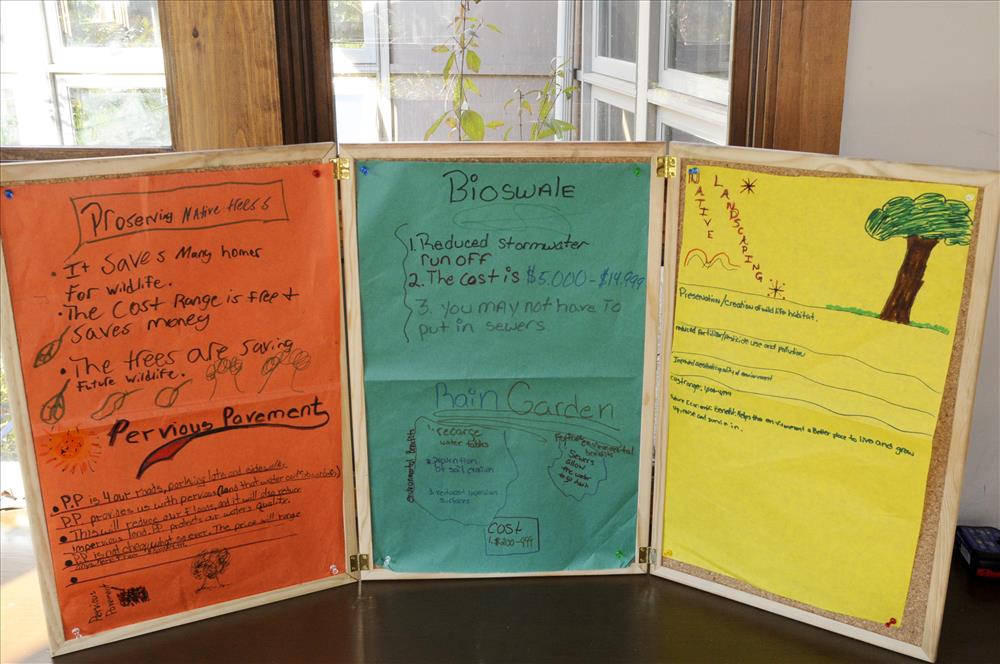 Proserving Native trees
• It saves Many homes
For wildlife.
• The Cost Range is free +
saves money
• The trees are saving
Future wildlife.
Pervious Pavement
• P.P is 4 our roads, parking lots and sidewalk.
P.P provides us with pervious (land that water can
• This will reduce our floods, and it will also reduce
impervious land. P.P protects our waters quality.
• P.P is not cheap what so ever. The price will range
Pervious
Pavement
Bioswale
1. Reduced stormwater
run off
2. The cost is $5,000-$14,999
3. you may not have to
put in sewers
Rain Garden
environmental benefits
1. recarge
water tables
2. prevention
of soil erosion
3. reduced
surfaces
environmental
benefits
Sewers
allow
the water
to go
Cost
1. $200-499
Native
Landscaping
Preservation/Creation of wild life habitat.
reduced fertilizer/pesticide use and pollution
Improved aesthetic quality of environment
cost range:
Future Economic Benefit: Helps the environment a Better place to live and grow
up, raise and